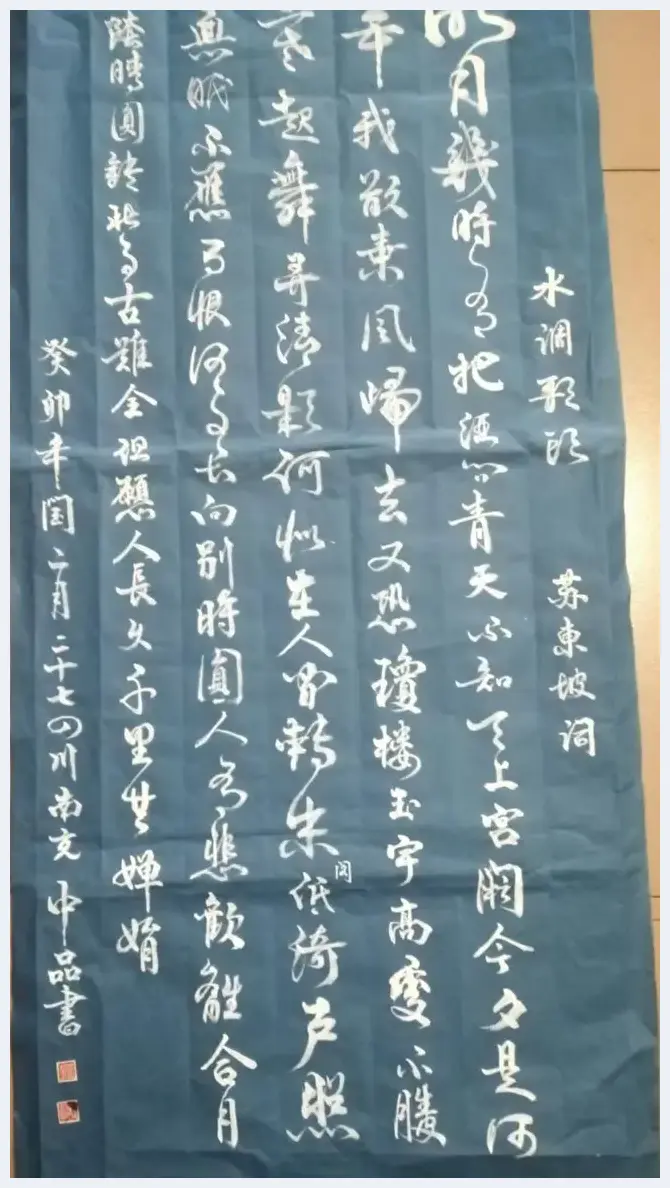 水调歌頭 苏東坡词
明月幾時有把酒问青天不知天上宫阙今夕是何
年我欲乘風歸去又恐瓊楼玉宇高處不勝
寒起舞弄清影何似在人间轉朱阁低绮户照
無眠不應有恨何事长向别時圓人有悲歡離合月
陰晴圓缺此事古難全但願人長久千里共婵娟
癸卯年闰二月二十七四川南充中品書